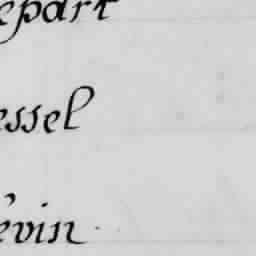 epart
essel
evin